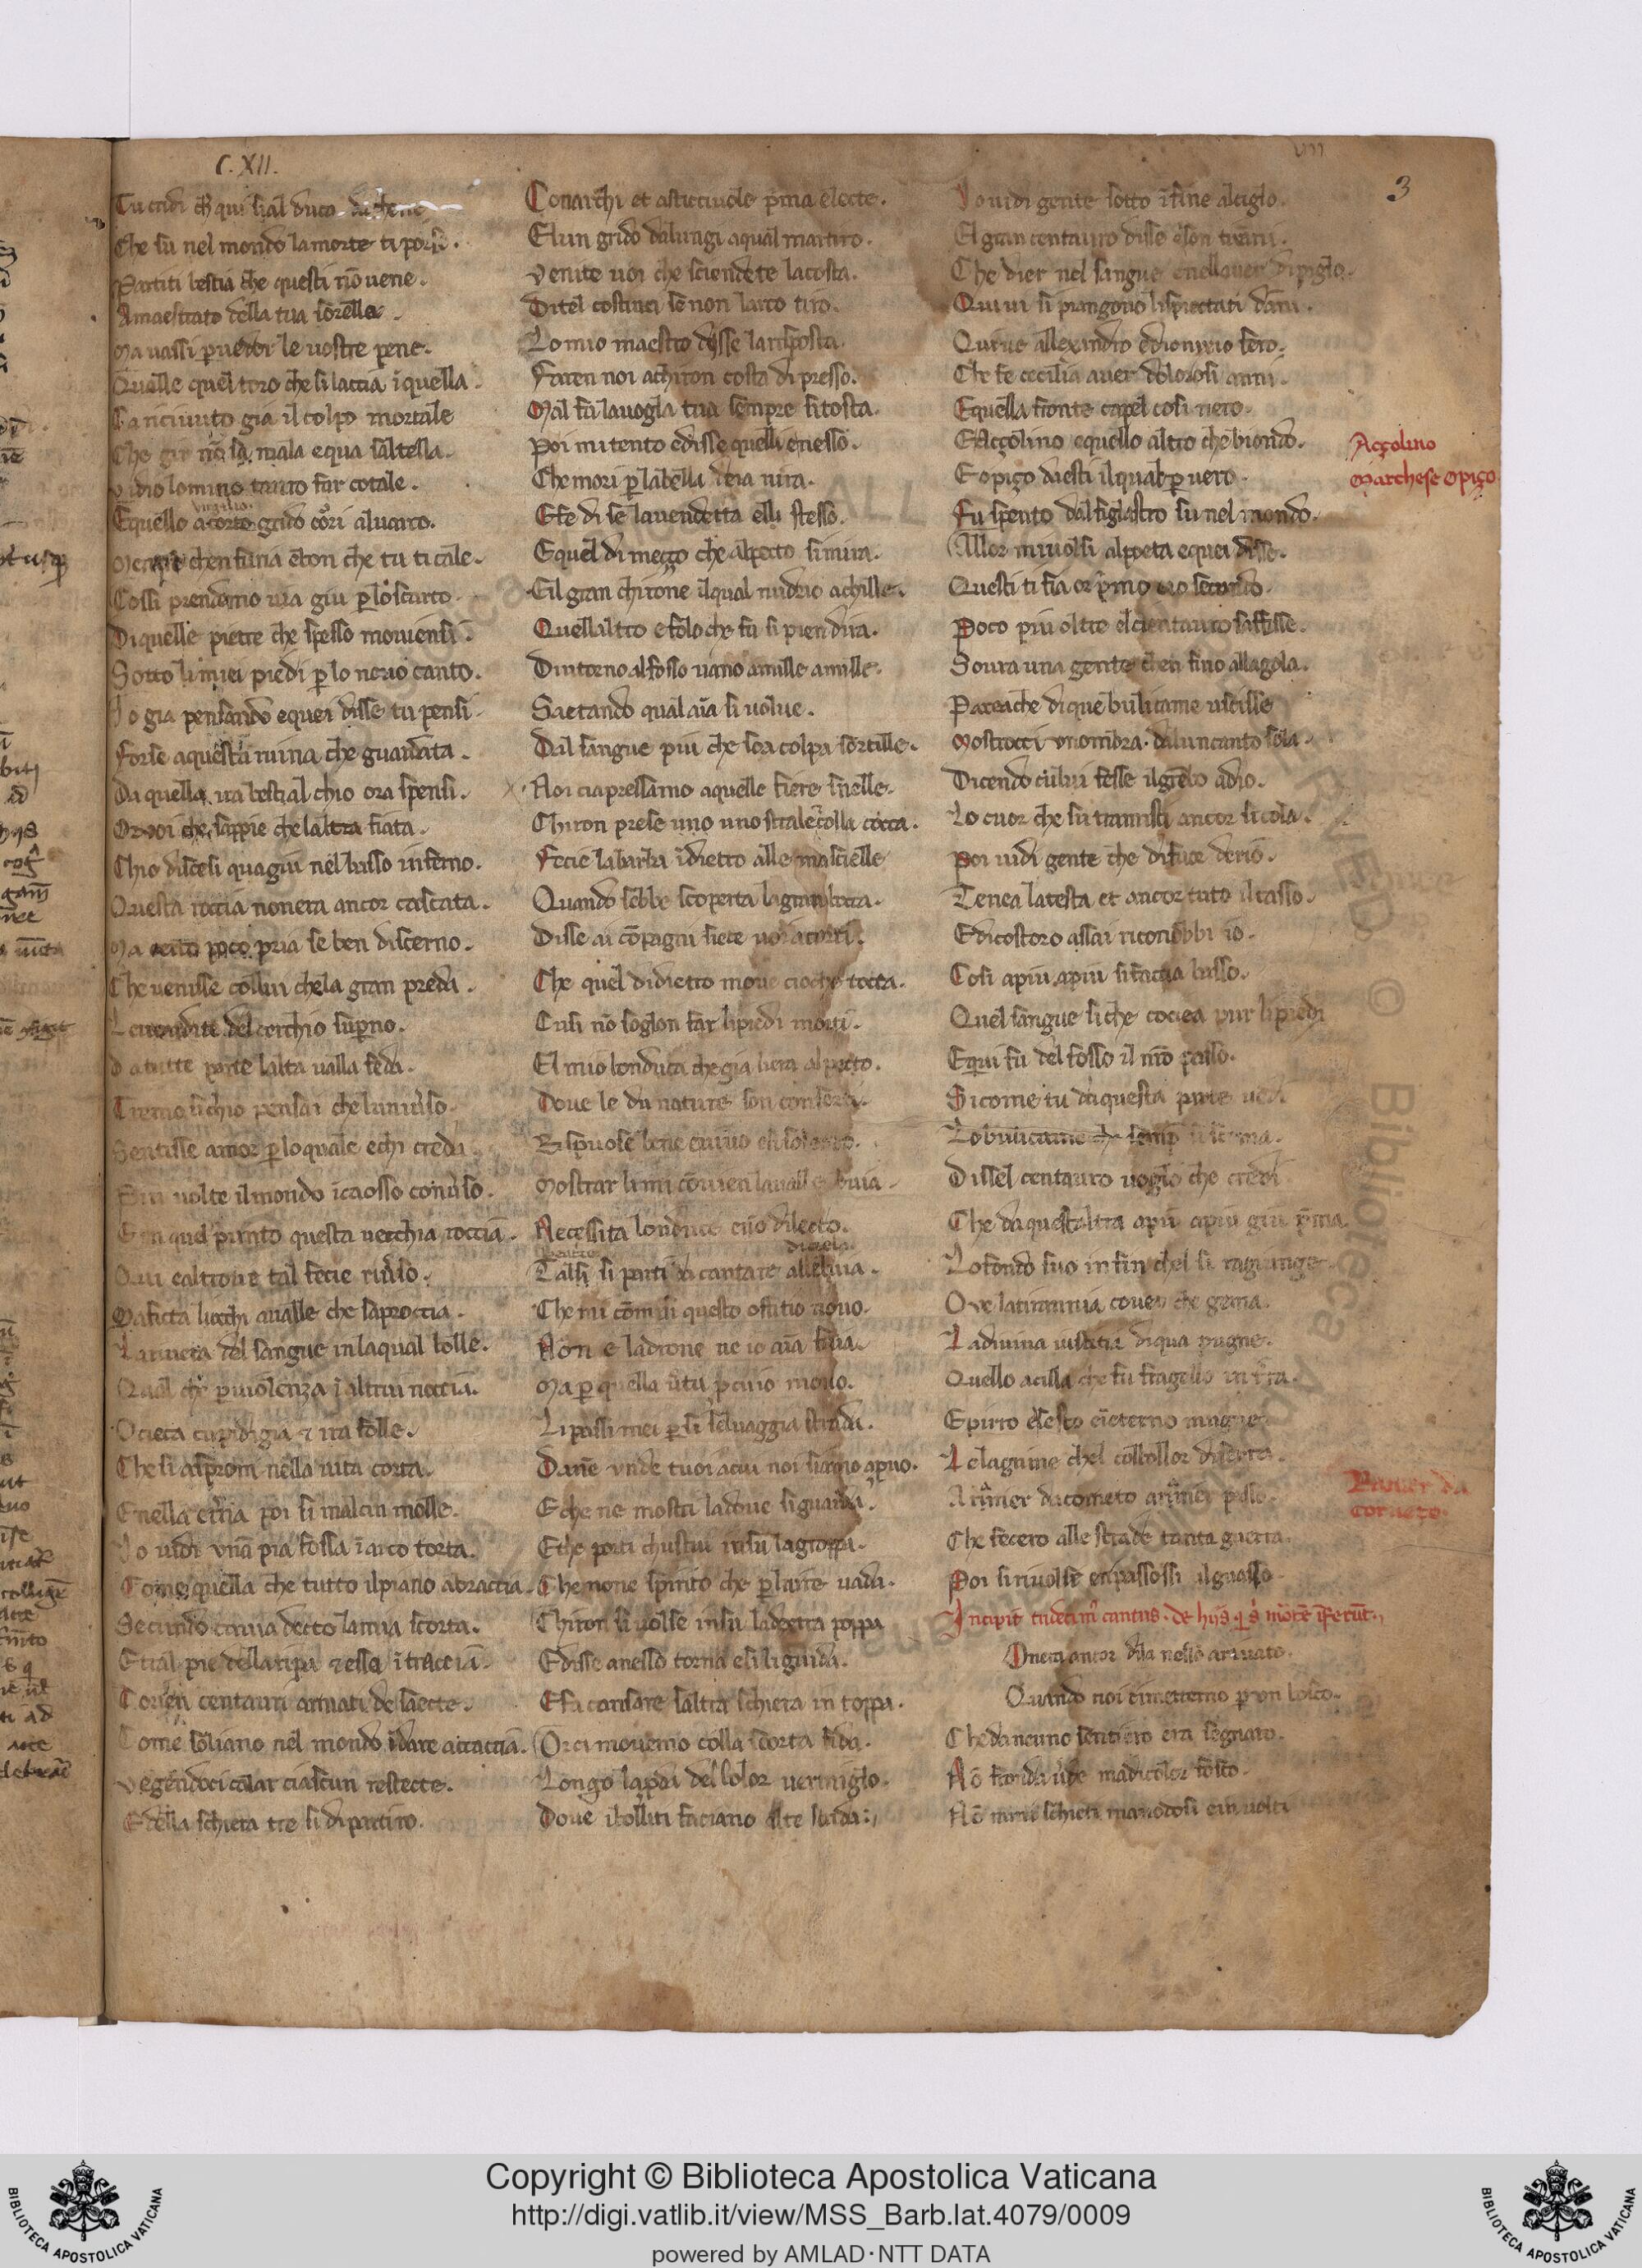 C. XII.
3
Tu credi ch qui sial duca dathene
Che fu nel mondo lamorte ti porse.
Partiti bestia che questi nō uene.
Amaestrato della tua sorella.
Ma uassi p uedoi le uostre pene.
Quelle quel toro che si laccia ī quella.
Ca riceuuto gia il colpo mortale
Che gir nō sa mala e qua saltella.
vidio lomino tauro far cotale.
virgilio
Equello acorto grido cori aluarco.
mentre chen furia e bon che tu ti cale.
Cossi prendemo uia giu p loscarco.
Diquelle pietre che spesso mouensi.
Sotto li miei piedi p lo nouo canto.
Io gia pensando equei disse tu pensi.
Forse aquesta ruina che guardata.
Da quella ira bestial chio ora spensi.
Or uoi che sappie che laltra fiata.
Chio discesi quagiu nel basso inferno.
Questa roccia nonera ancor cascata.
Ma certo poco pria se ben discerno.
Che uenisse collui chela gran preda.
Leuo a dite del cerchio supno.
Da tutte parte lalta ualla feda.
Tremo sichio pensai che luniuso.
Sentisse amor p loquale echi creda
Piu uolte ilmondo icaosso conuso.
E en quel punto questa uecchia roccia.
Qui ealtroue tal fecie riuerso.
Maficca liocchi aualle che saproccia.
La riuiera del sangue inlaqual bolle.
Qual che p uiolenza ī altrui noccia.
O cieca cupidigia 7 ira folle.
Che si asproni nella uita corta.
Enella etna poi si malem molle.
Io uidi vna pia fossa ī arco torta.
Come quella che tutto ilpiano abraccia.
Secundo cauia decto lamia scorta.
Etral pie dellaripa 7 essa ī traccia.
Corien centauri armati de saecte.
Come soliano nel mondo īdare atraccia.
Vegendoci calar ciascun restecte.
Edella schiera tre si dipartiro.
Conarchi et asticciuole pma electe.
Elun grido dalungi aqual martiro.
Venite uoi che sciendete lacosta.
Ditel costinci se non larco tiro.
Lo mio maestro disse larisposta.
Faren noi achiron costa di presso.
Mal fu lauogla tua sempre si tosta.
Poi mi tento edisse quelli e nesso.
Chemori p labella deianira.
Efe di se lauendetta elli stesso.
Equel di mezo che alpecto simira.
Eil gran chirone ilqual nudrio achille.
Quellaltro e folo che fu si pien dira.
Dintorno alfosso uano amille amille.
Saetando qual aīa si uolue.
Dal sangue piu che soa colpa sortille.
Noi ciapressamo aquelle fiere snelle.
Chiron prese uno uno strale ē colla cocca.
Fecie labarba īdietro alle mascielle
Quando sebbe scoperta lagran bocca.
Disse ai cōpagni siete uoi acorti.
Che quel didietro moue cioche tocca.
Cusi nō soglon far lipiedi morti.
El mio bonduca che gia liera alpecto.
Doue le du nature son consorti.
Rispuose bene e uiuo esi soletto.
Mostrar limi cōuien laualle buia.
Necessita londuce e nō dilecto.
beatrice
di cielo
Talsi si parti da cantare alleluia.
Che mi cōmisi questo offitio nouo.
Non e ladrone ne io aīa fuia.
Ma p quella utu p cuio mouo.
Li passi mei p si seluaggia strada.
Danne vnde tuoi acui noi siamo apruo.
Eche ne mostri ladoue siguada.
Ethe porti chustui insu lagroppa.
Chenone spirito che p laire uada.
Chiron si uolse insu ladextra poppa
Edisse anesso torna e si li guida.
Efa cansare saltra schiera in toppa.
Orci mouemo colla scorta fida.
Longo laproda del bolor uermiglo.
Doue ibolliti faciano alte strida:,
Io uidi gente sotto ī fine alciglo.
El gran centauro disse e son tiranni.
Che dier nel sangue e nellauer dipiglo.
Quiui si piangono lispiectati danni.
Quiue allexandro e dionisio fero.
Che fe cecilia auer dolorosi anni.
Equella fronte capel cosi nero.
E Açolino equello altro che biondo.
E opiço da esti ilquale p uero.
Fu spento dal figlastro su nel mondo.
Allor mi uolsi alpoeta equei disse.
Questi ti fia or pmo e io secondo.
Poco piu oltre el centauro saffisse.
Soura una gente chen fino allagola.
Pareache di que bulicame uscisse
Mostrocci vnombra daluncanto sola.
Dicendo cului fesse ilgrēbo adio.
Lo cuor che su tamisci ancor si cola.
Poi uidi gente che difuor de rio.
Tenea latesta et ancor tuto il casso.
Edicostoro assai riconobbi io.
Cosi apiu apiu si facea basso.
Quel sangue siche cocea pur lipiedi
Equi fu del fosso il nro passo.
Sicome tu daquesta parte uedi
Lobulicame che semp si scema.
Dissel centauro uoglo che credi
Che daquestaltra apiu apiu giu pma
Lofondo suo in fin chel si ragiunge.
Oue latirannia conuen che gema.
La diuina iustitia diqua pugne.
Quello atilla che fu fragello in tra.
Epirro e sesto eīeterno mugne.
Lelagrime chel collollor diserra.
A rinier dacorneto a rinier paço.
Che fecero alle strade tanta guerra.
Poi siriuolse eripassossi ilguasso.
Incipit tredecim cantus. de hiis q s morte īferūt.
Onera ancor dila nesso arriuato.
Quando noi cimettemo p vn bosco.
Chedaneuno sentiero era segnato.
Nō fronda uerde ma dicolor fosco.
Nō rami schieti ma nodosi e inuolti
Açolino
Marchese Opiço
Rinier da
Corneto.
Copyright © Biblioteca Apostolica Vaticana
http://digi.vatlib.it/view/MSS_Barb.lat.4079/0009
powered by AMLAD·NTT DATA
BIBLIOTECA APOSTOLICA VATICANA
BIBLIOTECA APOSTOLICA VATICANA